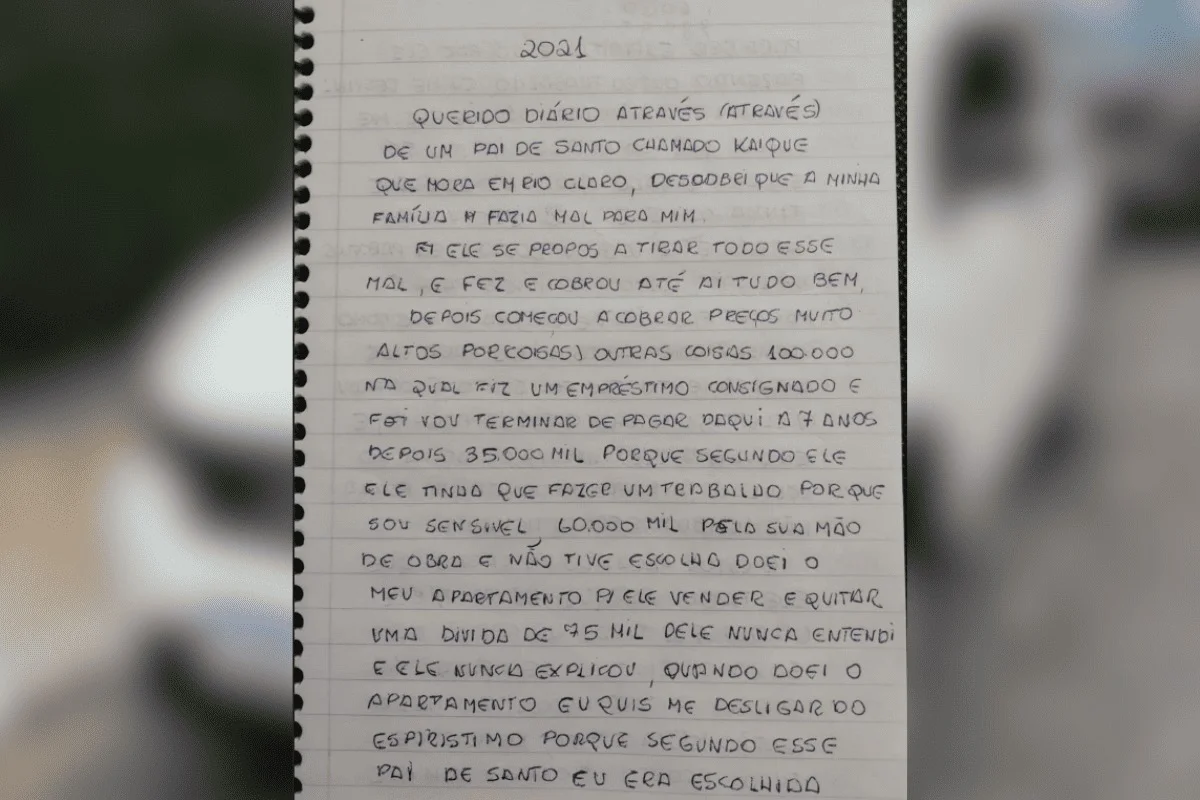 2021
QUERIDO DIÁRIO ATRAVÉS (ATRAVÉS)
DE UM PAI DE SANTO CHAMADO KAIQUE
QUE MORA EM RIO CLARO, DESCOBRI QUE A MINHA
FAMÍLIA FAZIA MAL PARA MIM
ELE SE PROPOS A TIRAR TODO ESSE
MAL, E FEZ E COBROU ATÉ AI TUDO BEM,
DEPOIS COMEÇOU A COBRAR PREÇOS MUITO
ALTOS POR COISAS) OUTRAS COISAS 100.000
NA QUAL FIZ UM EMPRÉSTIMO CONSIGNADO E
VOU TERMINAR DE PAGAR DAQUI A 7 ANOS
DEPOIS 35.000 MIL PORQUE SEGUNDO ELE
ELE TINHA QUE FAZER UM TRABALHO PORQUE
SOU SENSIVEL, 60.000 MIL PELA SUA MÃO
DE OBRA E NÃO TIVE ESCOLHA DOEI O
MEU APARTAMENTO P/ ELE VENDER E QUITAR
UMA DIVIDA DE 75 MIL DELE NUNCA ENTENDI
E ELE NUNCA EXPLICOU, QUANDO DOEI O
APARTAMENTO EU QUIS ME DESLIGAR DO
ESPIRISTIMO PORQUE SEGUNDO ESSE
PAI DE SANTO EU ERA ESCOLHIDA